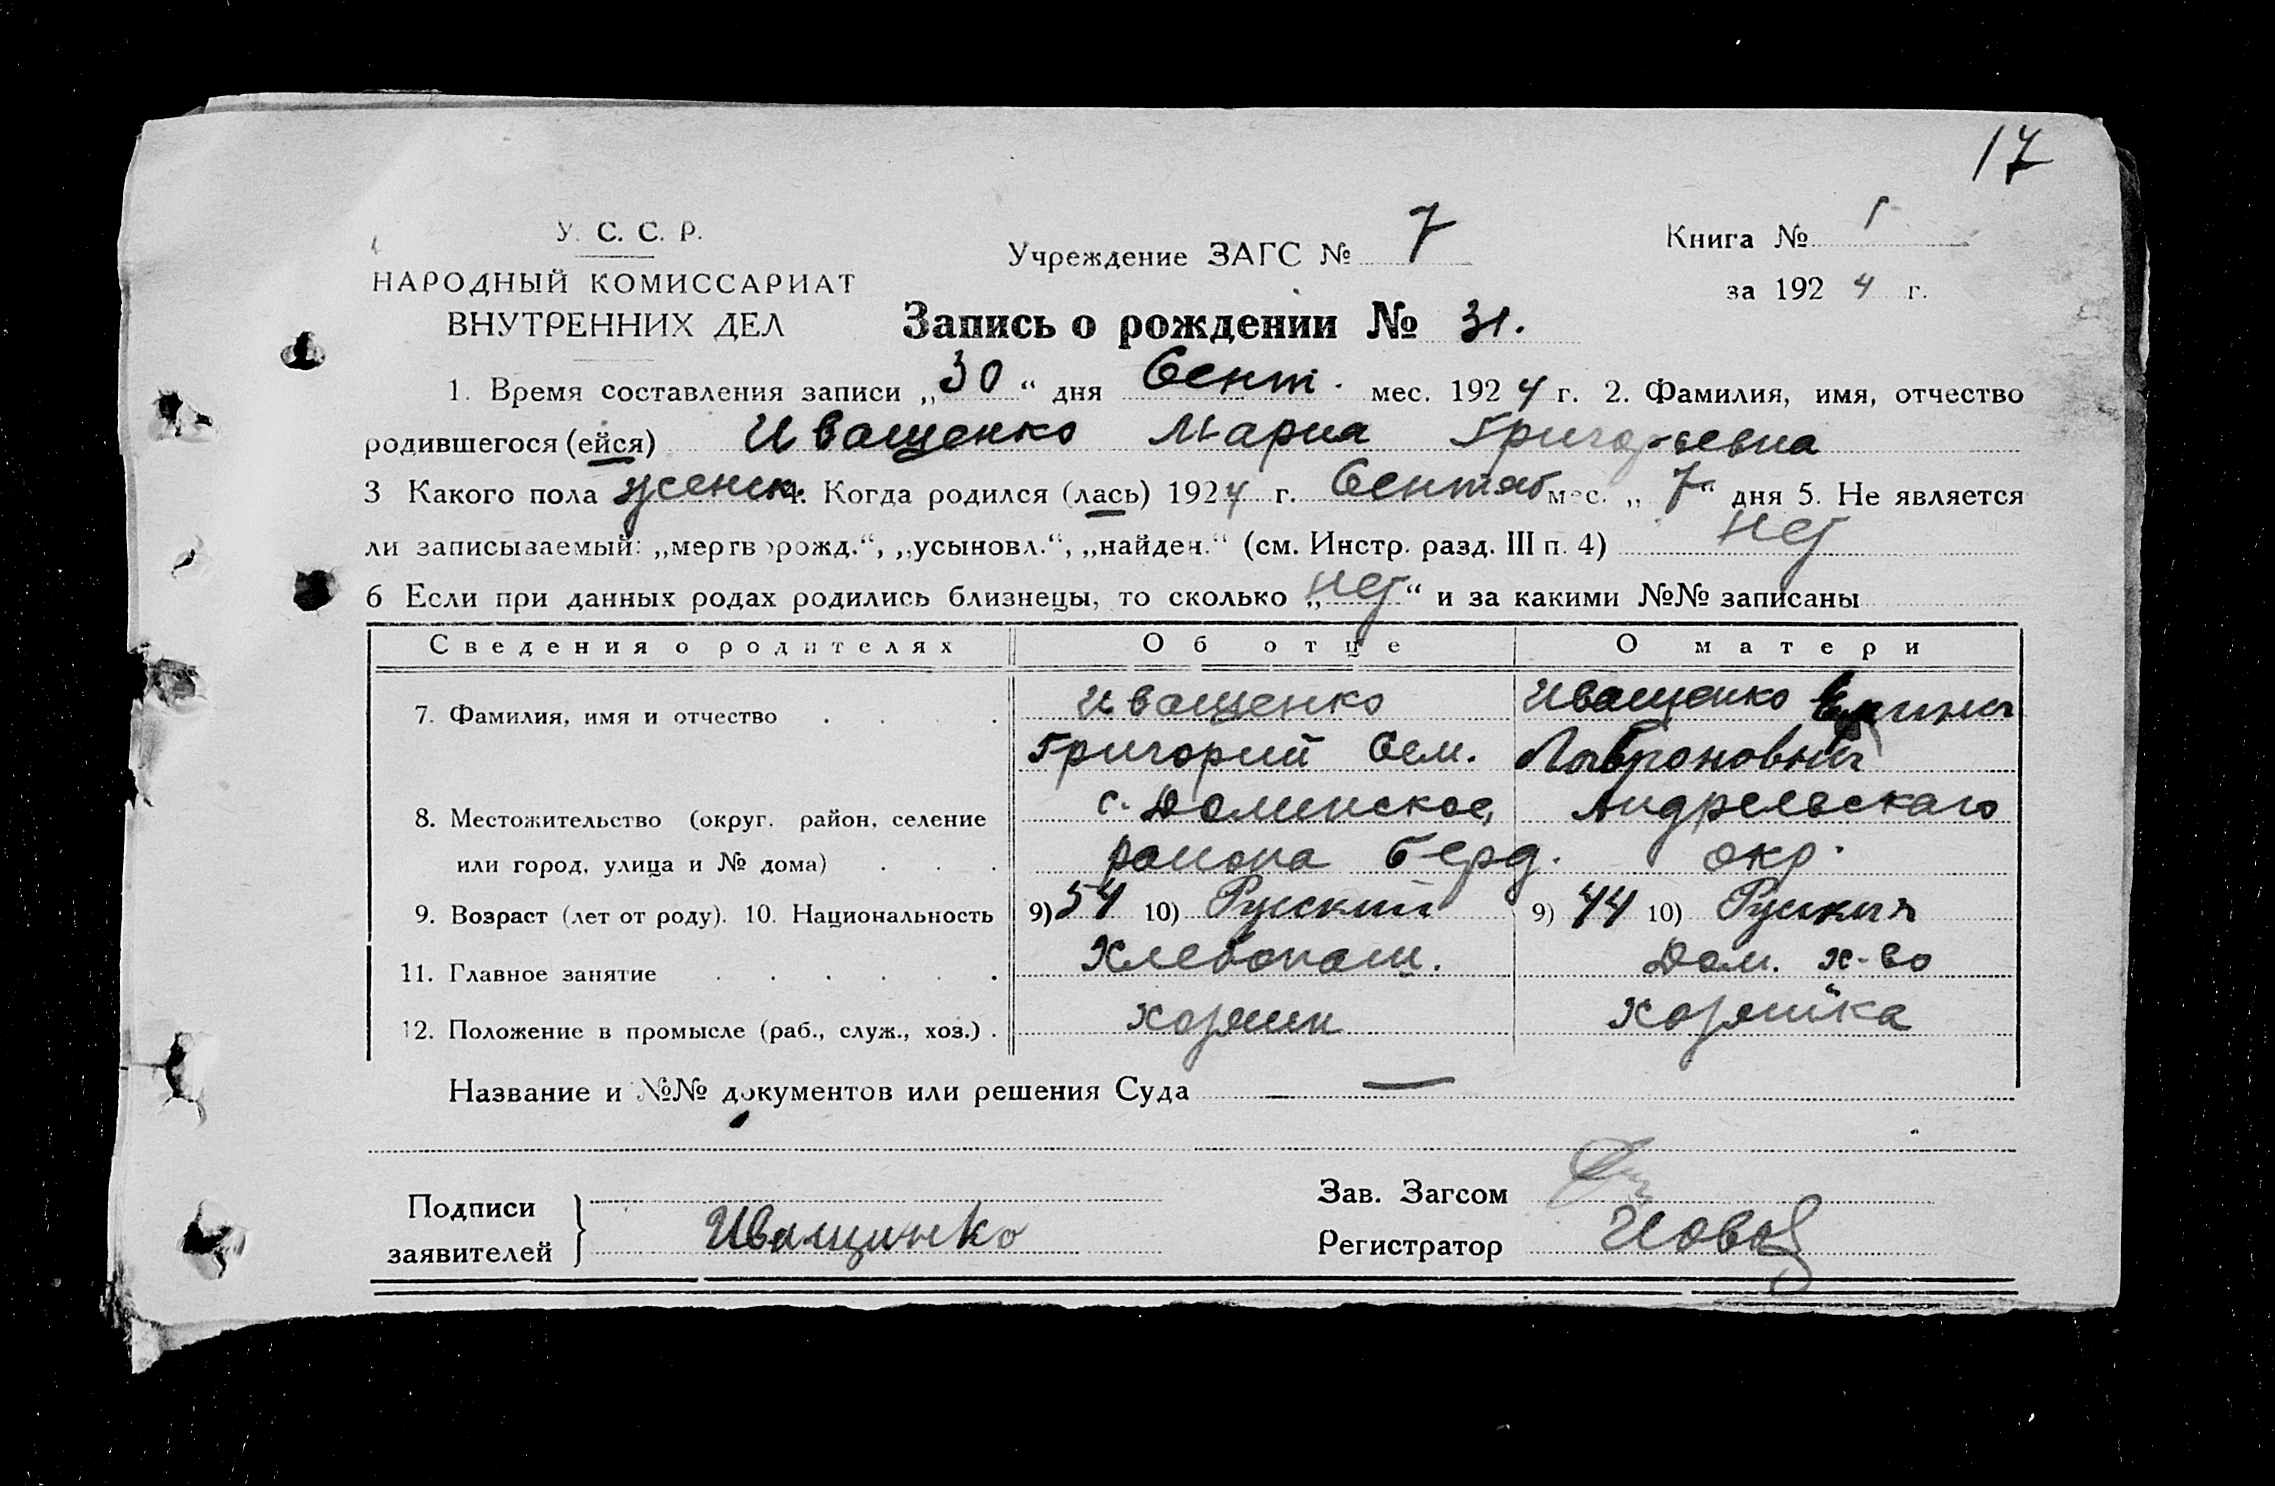 17
У. С. С. Р.
НАРОДНЫЙ КОМИССАРИАТ
ВНУТРЕННИХ ДЕЛ
Учреждение ЗАГС № 7
Книга № 1
за 1924 г.
Запись о рождении № 31.
1. Время составления записи „30“ дня Сент. мес. 1924 г. 2. Фамилия, имя, отчество
родившегося (ейся) Иващенко Мария Григорьевна
3 Какого пола женск. 4. Когда родился (лась) 1924 г. Сентяб мес. „7“ дня 5. Не является
ли записываемый: „мертворожд.“, „усыновл.“, „найден.“ (см. Инстр. разд. III п. 4) нет
6 Если при данных родах родились близнецы, то сколько „нет“ и за какими №№ записаны
Сведения о родителях Об отце О матери
7. Фамилия, имя и отчество . . . . Иващенко Иващенко
Григорий Сем.
8. Местожительство (округ. район, селение с. Долинское, Андреевскаго
или город, улица и № дома) . . . района Берд. окр.
9. Возраст (лет от роду). 10. Национальность 9) 54 10) Русский 9) 44 10)
11. Главное занятие . . . . . . Хлебопаш. Дом. х-во
12. Положение в промысле (раб., служ., хоз.) . хозяин хозяйка
Название и №№ документов или решения Суда —
Подписи
заявителей } Иващинко
Зав. Загсом
Регистратор